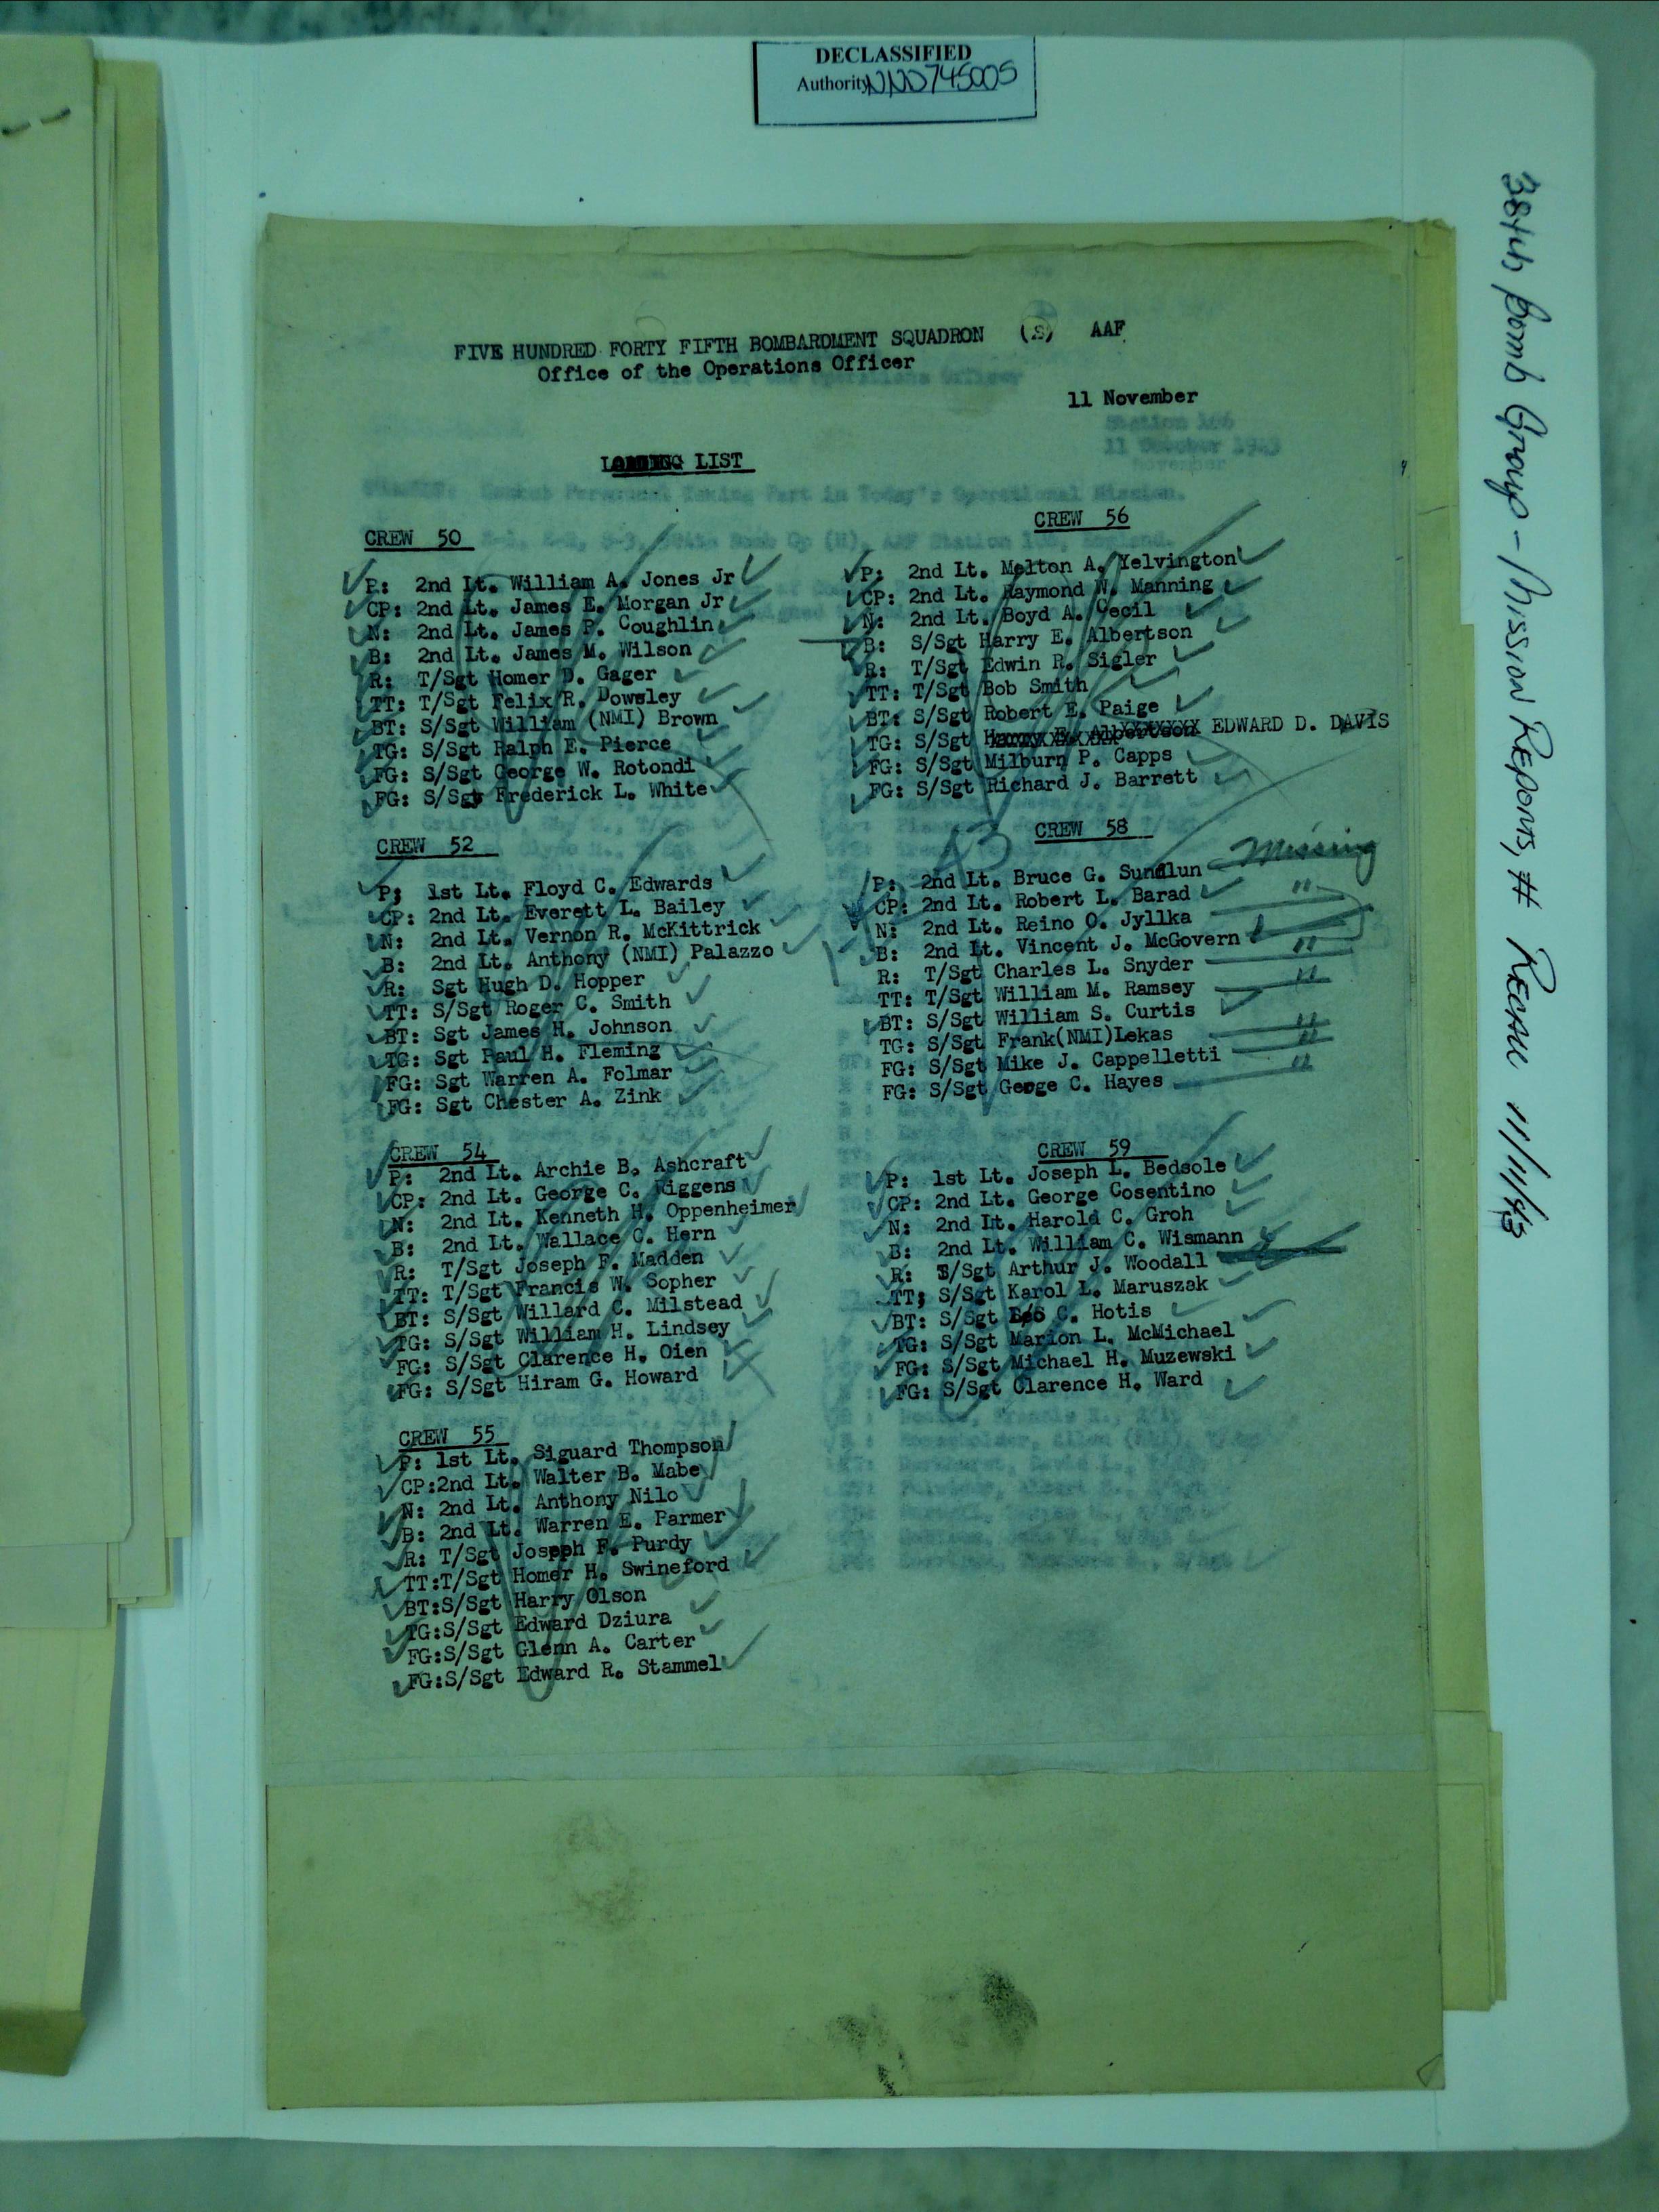 DECLASSIFIED
Authority NND 745005
384th Bomb Group - Mission Reports, # RECALL 11/11/43
FIVE HUNDRED FORTY FIFTH BOMBARDMENT SQUADRON (S) AAF
Office of the Operations Officer
11 November
LIST
CREW 50
P: 2nd Lt. William A. Jones Jr
CP: 2nd Lt. James E. Morgan Jr
N: 2nd Lt. James P. Coughlin
B: 2nd Lt. James M. Wilson
R: T/Sgt Homer D. Gager
TT: T/Sgt Felix R. Dowsley
BT: S/Sgt William (NMI) Brown
TG: S/Sgt Ralph E. Pierce
FG: S/Sgt George W. Rotondi
FG: S/Sgt Frederick L. White
CREW 52
P; 1st Lt. Floyd C. Edwards
CP: 2nd Lt. Everett L. Bailey
N: 2nd Lt. Vernon R. McKittrick
B: 2nd Lt. Anthony (NMI) Palazzo
R: Sgt Hugh D. Hopper
TT: S/Sgt Roger C. Smith
BT: Sgt James H. Johnson
TG: Sgt Paul H. Fleming
FG: Sgt Warren A. Folmar
FG: Sgt Chester A. Zink
CREW 54
P: 2nd Lt. Archie B. Ashcraft
CP: 2nd Lt. George C. Riggens
N: 2nd Lt. Kenneth H. Oppenheimer
B: 2nd Lt. Wallace C. Hern
R: T/Sgt Joseph F. Madden
TT: T/Sgt Francis W. Sopher
BT: S/Sgt Willard C. Milstead
TG: S/Sgt William H. Lindsey
FG: S/Sgt Clarence H. Oien
FG: S/Sgt Hiram G. Howard
CREW 55
P: 1st Lt. Siguard Thompson
CP:2nd Lt. Walter B. Mabe
N: 2nd Lt. Anthony Nilo
B: 2nd Lt. Warren E. Parmer
R: T/Sgt Joseph F. Purdy
TT:T/Sgt Homer H. Swineford
BT:S/Sgt Harry Olson
TG:S/Sgt Edward Dziura
FG:S/Sgt Glenn A. Carter
FG:S/Sgt Edward R. Stammel
CREW 56
P: 2nd Lt. Melton A. Yelvington
CP: 2nd Lt. Raymond W. Manning
N: 2nd Lt. Boyd A. Cecil
B: S/Sgt Harry E. Albertson
R: T/Sgt Edwin R. Sigler
TT: T/Sgt Bob Smith
BT: S/Sgt Robert E. Paige
TG: S/Sgt Harry E. Albertson EDWARD D. DAVIS
FG: S/Sgt Milburn P. Capps
FG: S/Sgt Richard J. Barrett
CREW 58
P: 2nd Lt. Bruce G. Sundlun Missing
CP: 2nd Lt. Robert L. Barad "
N: 2nd Lt. Reino O. Jyllka
B: 2nd Lt. Vincent J. McGovern "
R: T/Sgt Charles L. Snyder "
TT: T/Sgt William M. Ramsey
BT: S/Sgt William S. Curtis
TG: S/Sgt Frank(NMI)Lekas "
FG: S/Sgt Mike J. Cappelletti "
FG: S/Sgt George C. Hayes "
CREW 59
P: 1st Lt. Joseph L. Bedsole
CP: 2nd Lt. George Cosentino
N: 2nd Lt. Harold C. Groh
B: 2nd Lt. William C. Wismann
R: S/Sgt Arthur J. Woodall
TT; S/Sgt Karol L. Maruszak
BT: S/Sgt C. Hotis
TG: S/Sgt Marion L. McMichael
FG: S/Sgt Michael H. Muzewski
FG: S/Sgt Clarence H. Ward